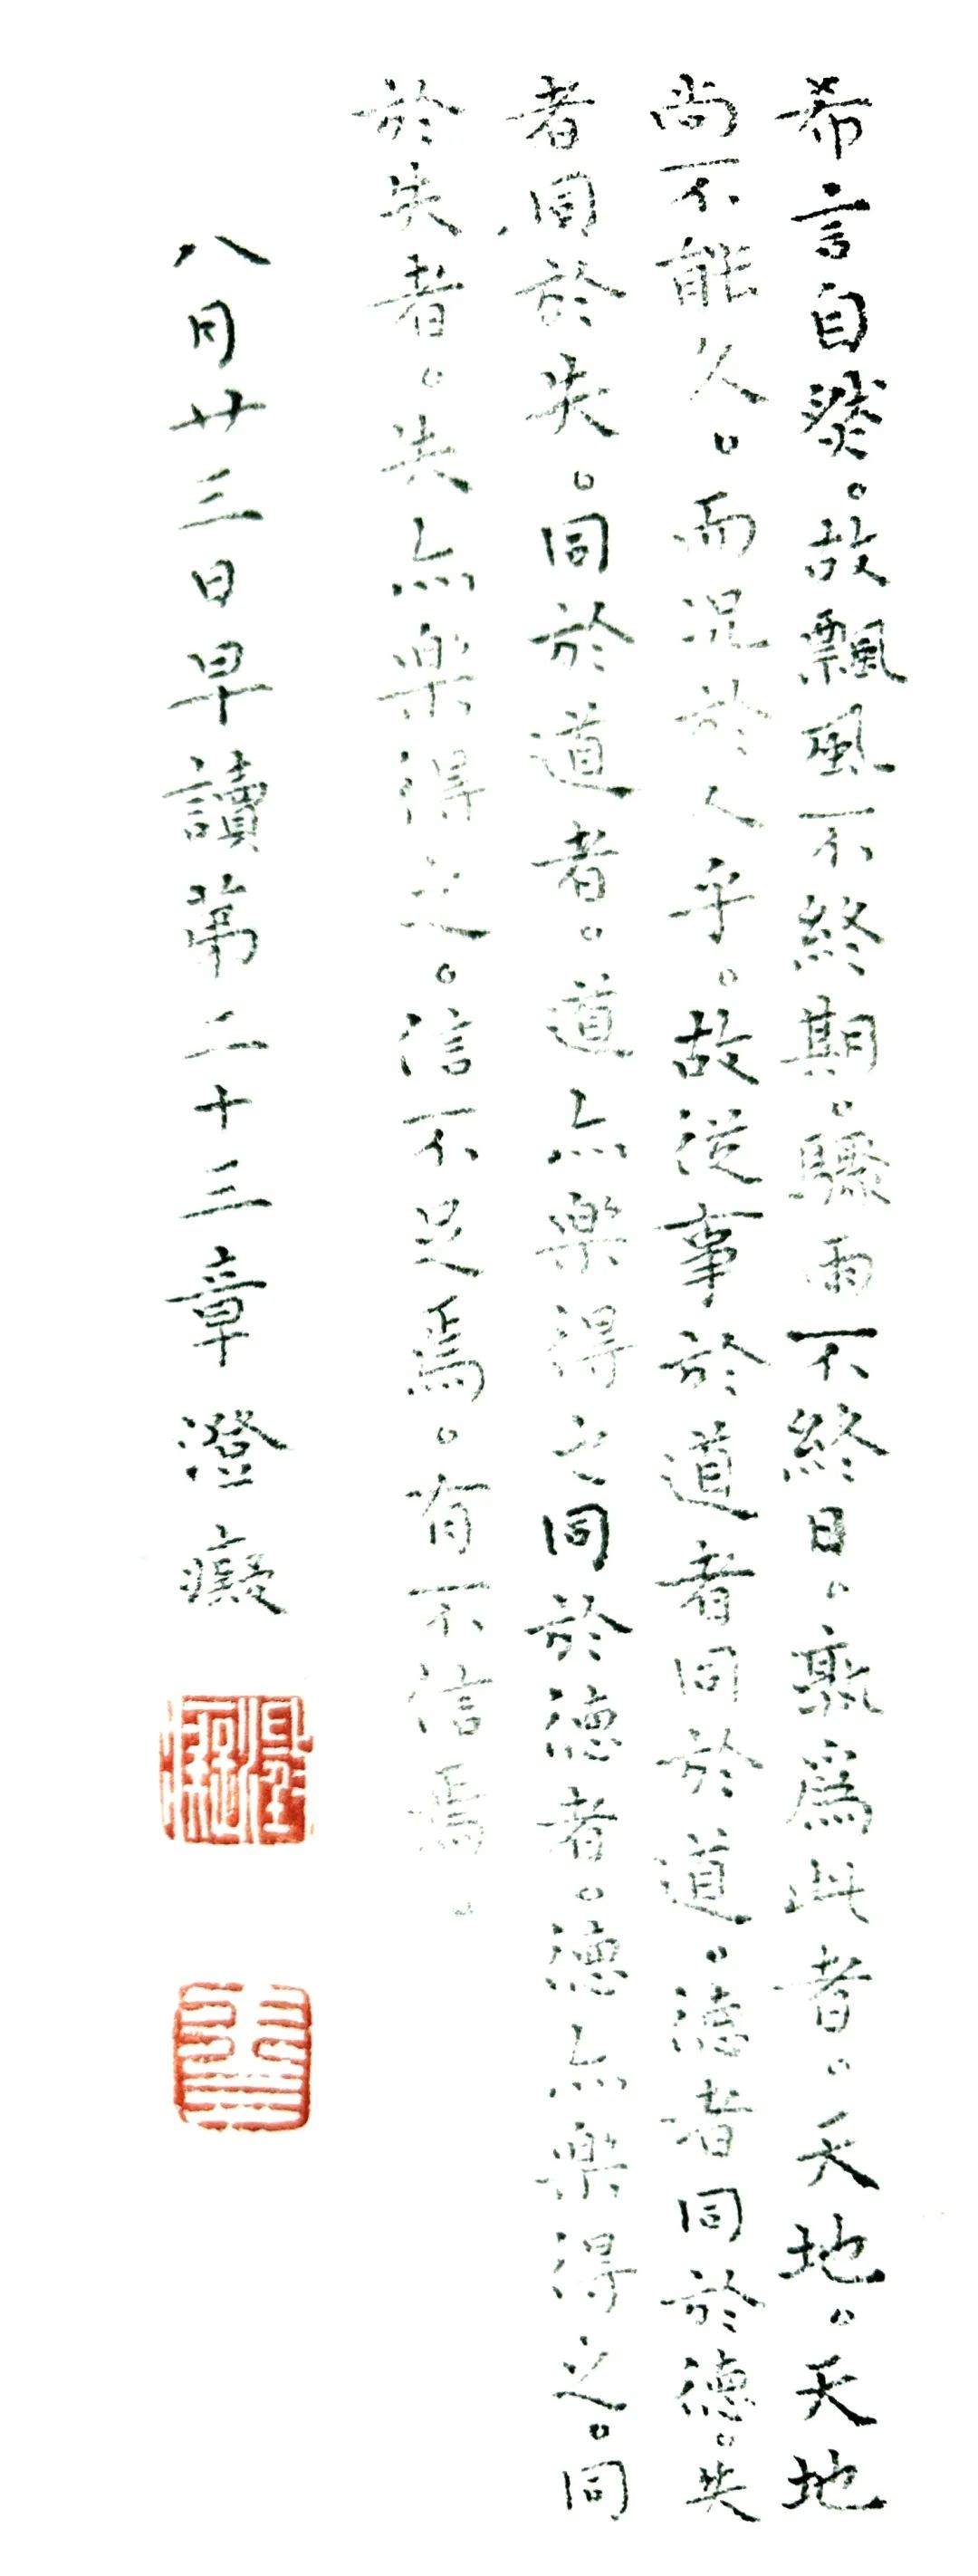 希言自然。故飄風不終期。驟雨不終日。孰爲此者。天地。天地
尚不能久。而況於人乎。故從事於道者同於道。德者同於德。失
者同於失。同於道者。道亦樂得之同於德者。德亦樂得之。同
於失者。失亦樂得之。信不足焉。有不信焉。
八月廿三日早讀第二十三章澄癡